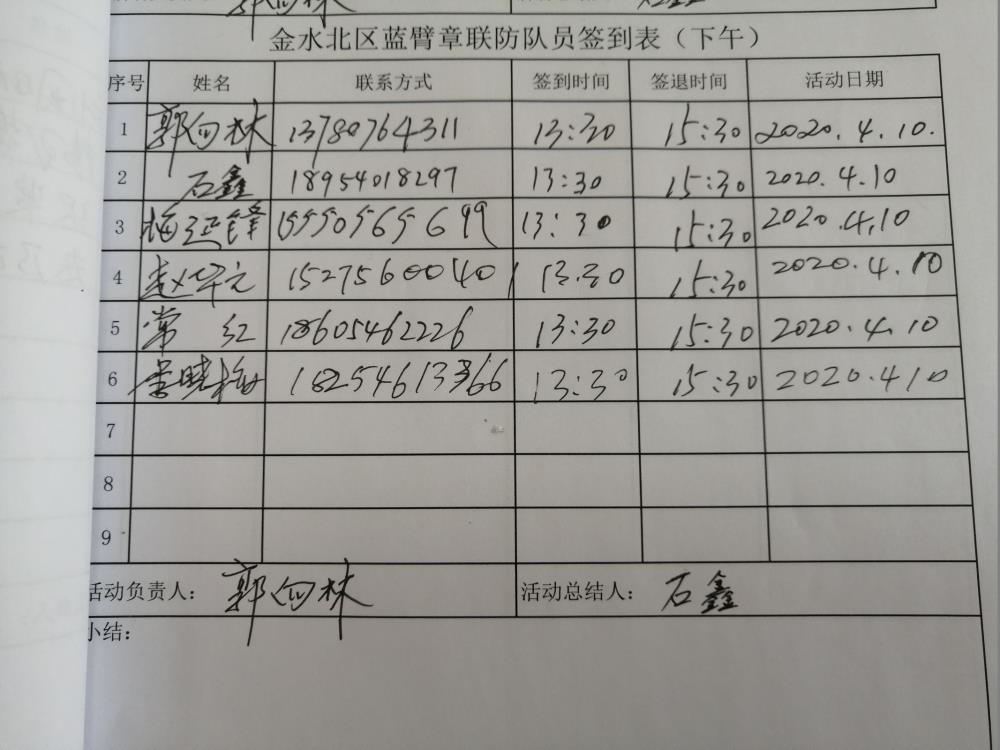 郭向林 石鑫
金水北区蓝臂章联防队员签到表（下午）
序号 姓名 联系方式 签到时间 签退时间 活动日期
1 郭向林 13780764311 13:30 15:30 2020.4.10.
2 石鑫 18954018297 13:30 15:30 2020.4.10
3 梅延锋 15550565699 13:30 15:30 2020.4.10
4 赵华元 15275600401 13:30 15:30 2020.4.10
5 常红 18605462226 13:30 15:30 2020.4.10
6 晓梅 18254613366 13:30 15:30 2020.4.10
7
8
9
活动负责人： 郭向林 活动总结人： 石鑫
小结：